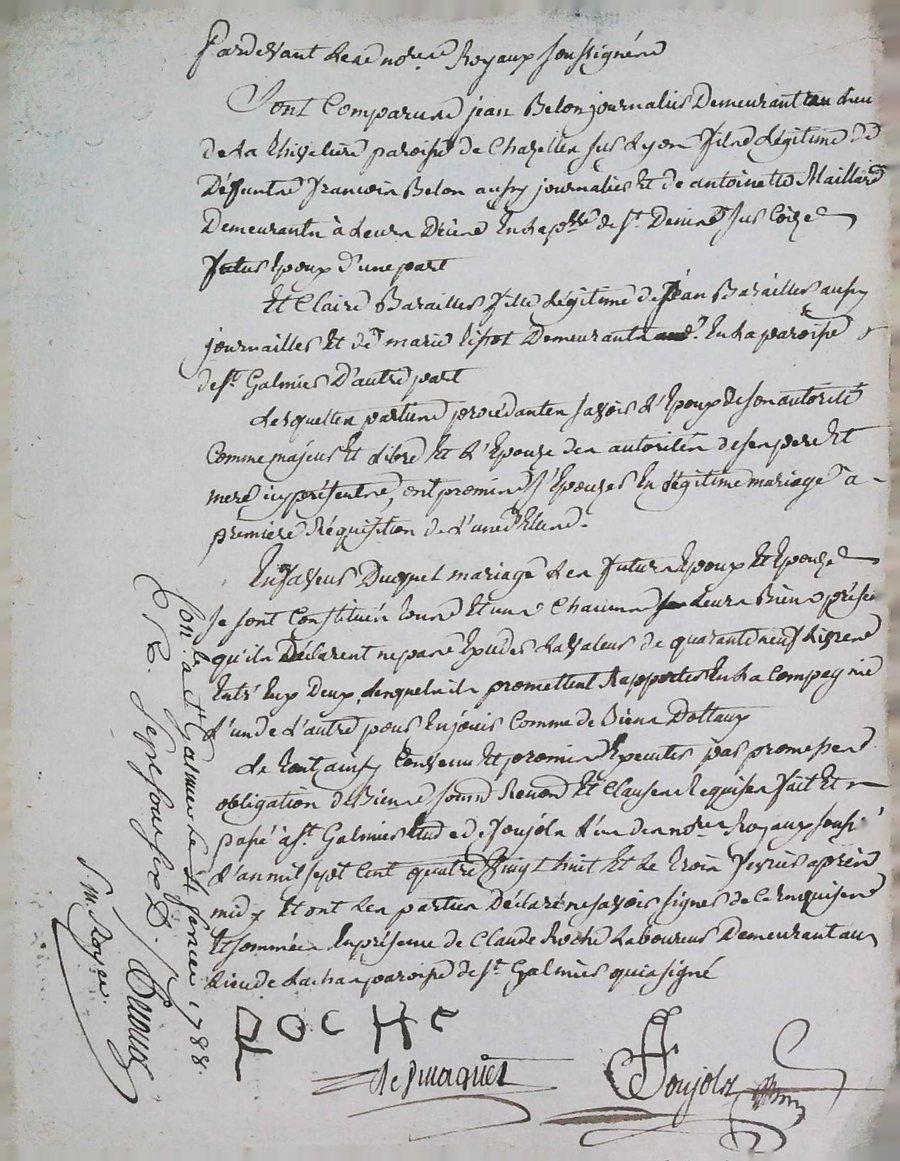 Pardevant les notres Royaux soussignés
Sont Comparus jean Belon journalier Demeurant au Lieu
de la paroisse de Chazelles sur Lyon fils Légitime de
Défuntre francois Belon aussy journalier Et de antoinette Maillard
Demeurants à Leurs En La psse de St Denis sur Coize
futur Epoux d'une part
Et Claire Barailler fille Légitime de Jéan Barailler aussy
journallier Et de marie Demeurants En La paroisse
de St Galmier D'autre part
Lesquelles parties procedantes savoir L'Epoux de son autorité
Comme majeur Et Libre Et L'Epouse des autorités de ses pere Et
mere icy présents, ont promis s'Epouser En Légitime mariage a
premiere Réquisition de L'une d'Eux
En faveur Duquel mariage Les futurs Epoux Et Epouse
se sont Constitués tous Et uns Chacuns Leurs Biens présents
qu'ils Déclarent ne pas Exceder La valeur de quarante neuf Livres
Entr'Eux Deux, Lesquels ils promettent Rapporter En La Compagnie
L'un de L'autre pour En jouir Comme de Biens Dottaux
Le tout ainsy Convenu Et promis Executer par promesses
obligation de Biens Renons Et Clauses Requises fait Et
passé à St Galmier Etude de foujols L'un des notres Royaux soussé
L'an mil sept Cent quatre vingt huit Et Le trois fevrier après
midy Et ont Les parties Déclaré ne savoir signer de Ce Enquises
Et sommées En présence de Claude Roche Laboureur Demeurant au
Lieu de paroisse de St Galmier qui a signé
ROCHE
foujols
Con. à St Galmier Le fevrier 1788.
R. sept sous